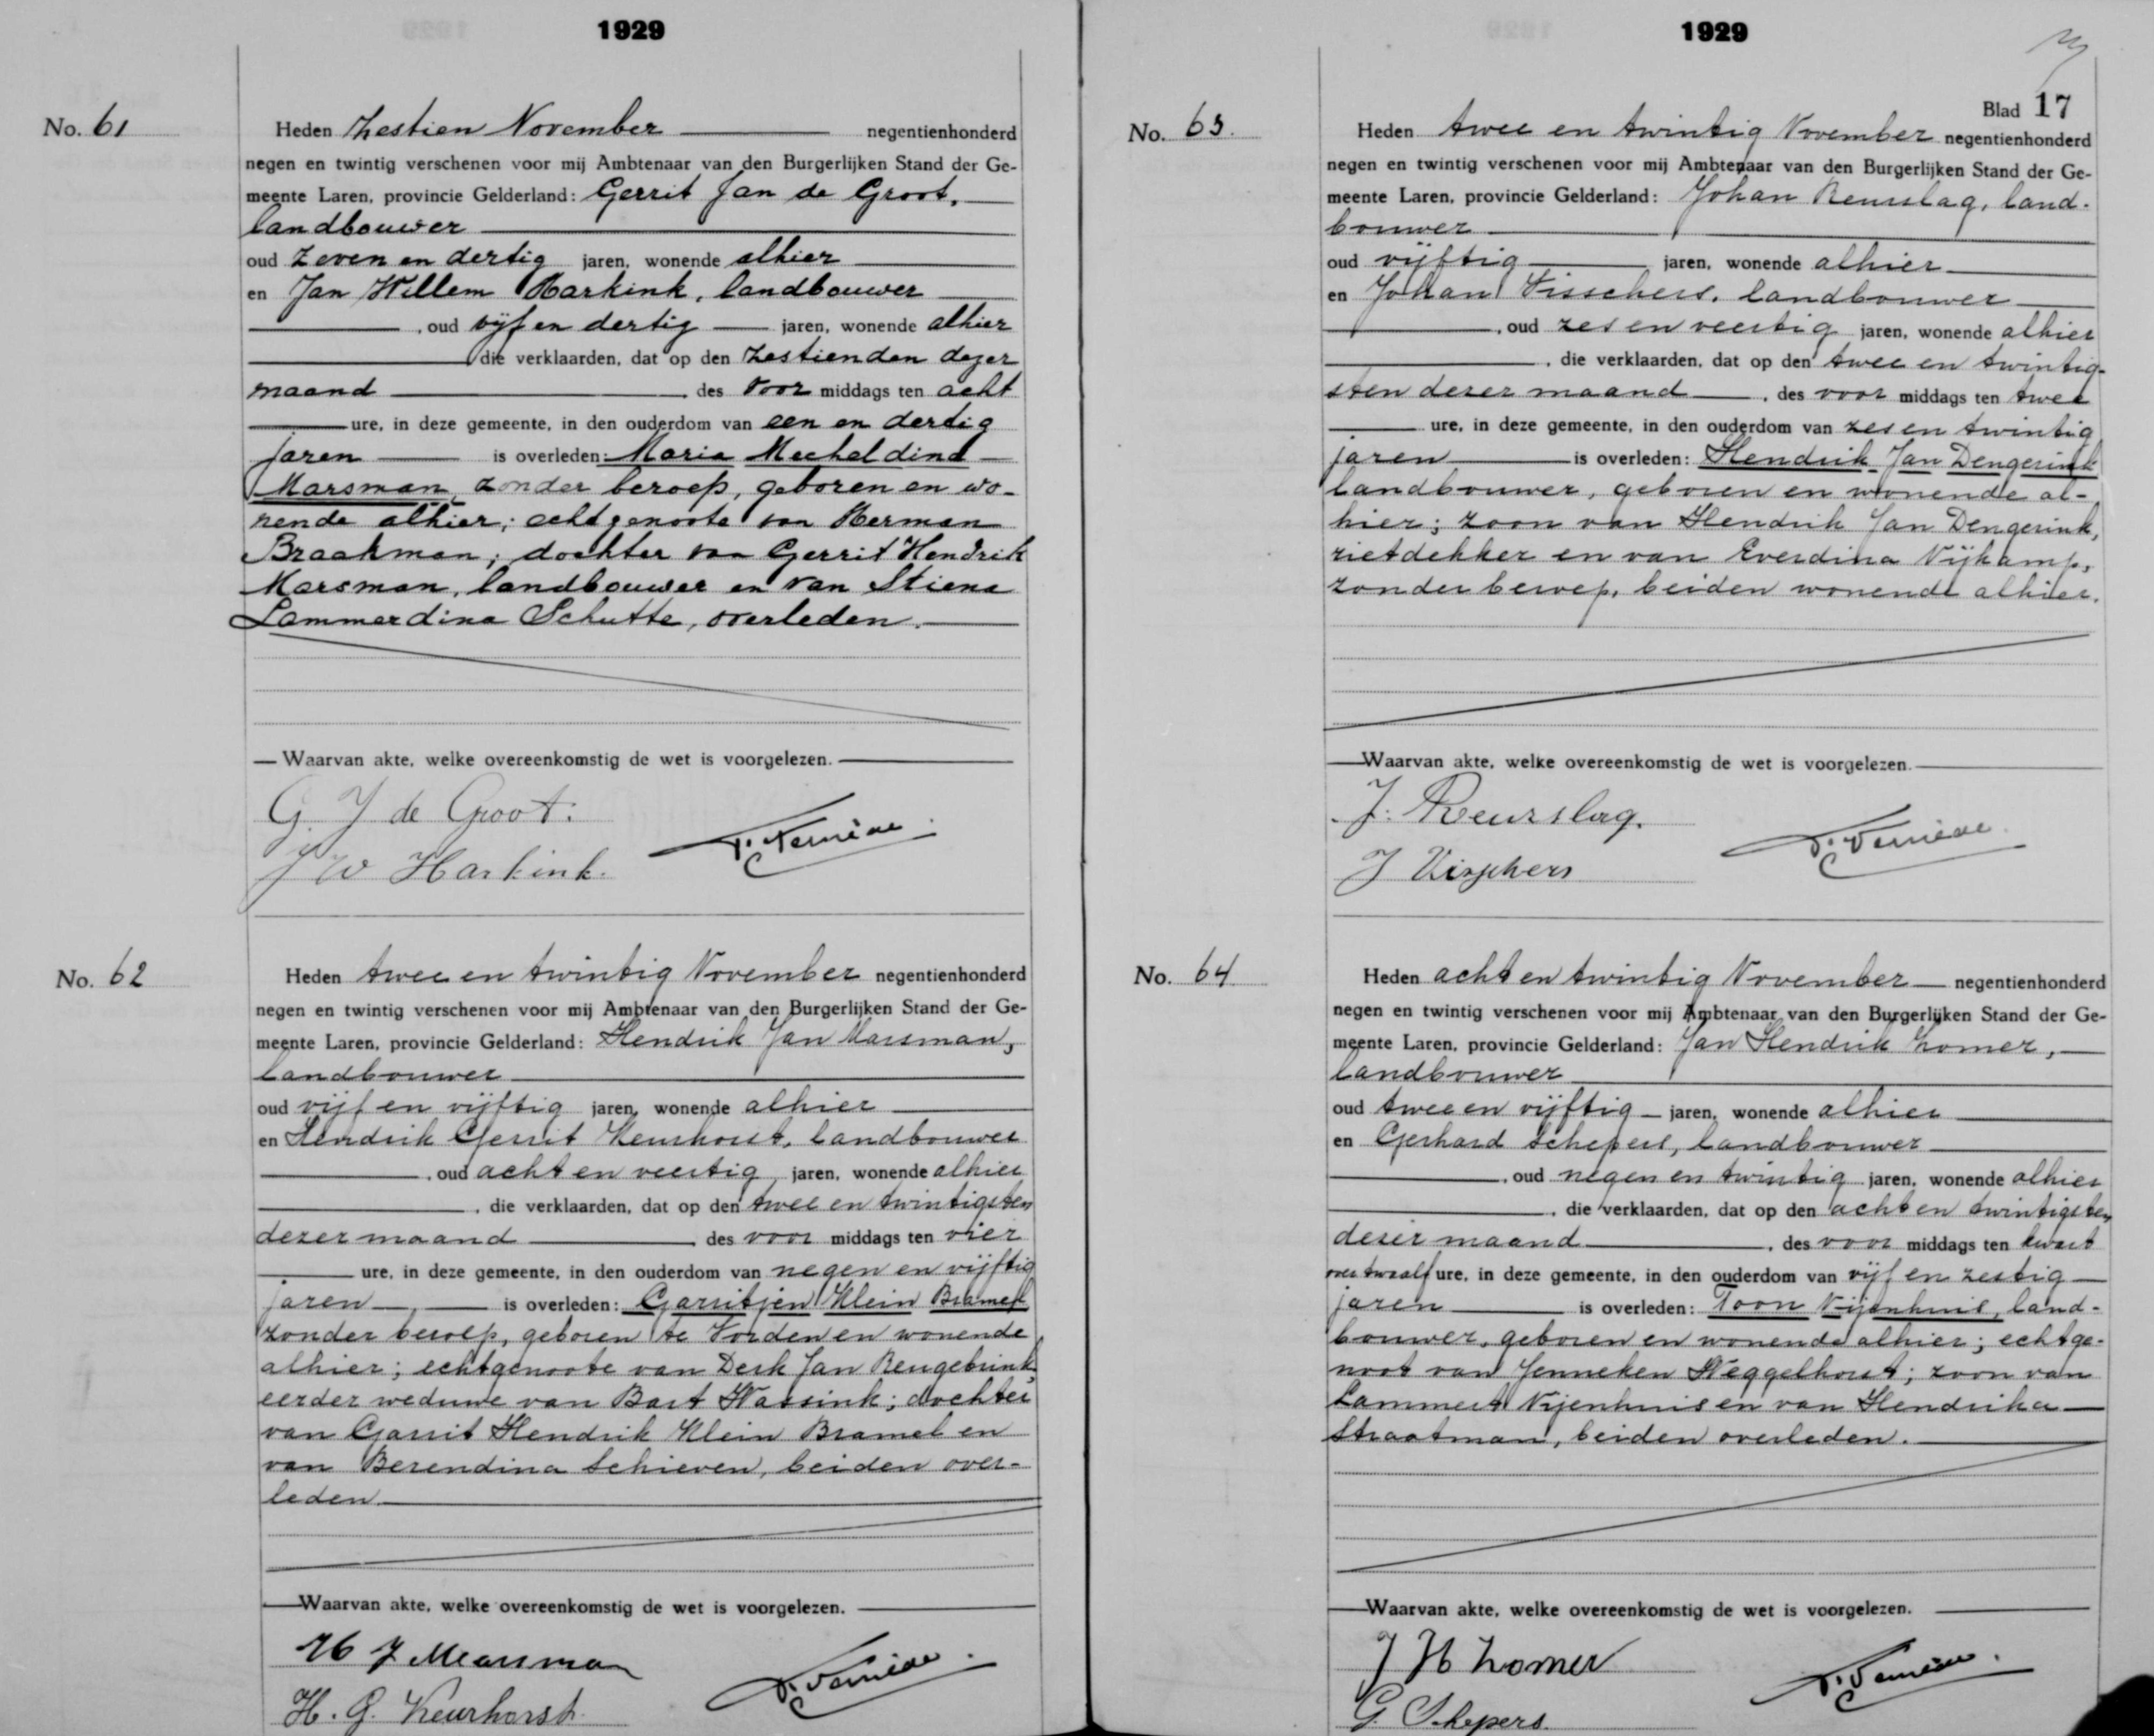 1929
No. 61
Heden Zestien November negentienhonderd
negen en twintig verschenen voor mij Ambtenaar van den Burgerlijken Stand der Ge-
meente Laren, provincie Gelderland: Gerrit Jan de Groot,
landbouwer
oud zeven en dertig jaren, wonende alhier
en Jan Willem Harkink, landbouwer
, oud vijf en dertig jaren, wonende alhier
die verklaarden, dat op den zestienden dezer
maand des voor middags ten acht
ure, in deze gemeente, in den ouderdom van een en dertig
jaren is overleden: Maria Mecheldina
Marsman, zonder beroep, geboren en wo-
nende alhier; echtgenoote van Herman
Braakman; dochter van Gerrit Hendrik
Marsman, landbouwer en van Stiena
Lammerdina Schutte, overleden.
Waarvan akte, welke overeenkomstig de wet is voorgelezen.
G. J de Groot.
J W Harkink.
No. 62
Heden twee en twintig November negentienhonderd
negen en twintig verschenen voor mij Ambtenaar van den Burgerlijken Stand der Ge-
meente Laren, provincie Gelderland: Hendrik Jan Marsman,
landbouwer
oud vijf en vijftig jaren, wonende alhier
en Hendrik Gerrit Keurhorst, landbouwer
, oud acht en veertig jaren, wonende alhier
, die verklaarden, dat op den twee en twintigsten
dezer maand des voor middags ten vier
ure, in deze gemeente, in den ouderdom van negen en vijftig
jaren is overleden: Garritjen Klein Bramel
zonder beroep, geboren te Vorden en wonende
alhier; echtgenoote van Derk Jan Rengebrink,
eerder weduwe van Bart Wassink; dochter
van Garrit Hendrik Klein Bramel en
van Berendina Schieven, beiden over-
leden.
Waarvan akte, welke overeenkomstig de wet is voorgelezen.
H J Marsman
H. G. Keurhorst
1929
Blad 17
No. 63.
Heden twee en twintig November negentienhonderd
negen en twintig verschenen voor mij Ambtenaar van den Burgerlijken Stand der Ge-
meente Laren, provincie Gelderland: Johan Reurslag, land-
bouwer
oud vijftig jaren, wonende alhier
en Johan Visschers, landbouwer
, oud zes en veertig jaren, wonende alhier
, die verklaarden, dat op den twee en twintig-
sten dezer maand , des voor middags ten twee
ure, in deze gemeente, in den ouderdom van zes en twintig
jaren is overleden: Hendrik Jan Dengerink
landbouwer, geboren en wonende al-
hier; zoon van Hendrik Jan Dengerink,
rietdekker en van Everdina Nijkamp,
zonder beroep, beiden wonende alhier.
Waarvan akte, welke overeenkomstig de wet is voorgelezen.
J. Reurslag.
J Visschers
No. 64
Heden acht en twintig November negentienhonderd
negen en twintig verschenen voor mij Ambtenaar van den Burgerlijken Stand der Ge-
meente Laren, provincie Gelderland: Jan Hendrik Zomer,
landbouwer
oud twee en vijftig jaren, wonende alhier
en Gerhard Schepers, landbouwer
, oud negen en twintig jaren, wonende alhier
, die verklaarden, dat op den acht en twintigsten
dezer maand , des voor middags ten kwart
over twaalf ure, in deze gemeente, in den ouderdom van vijf en zestig
jaren is overleden: Toon Nijenhuis, land-
bouwer, geboren en wonende alhier; echtge-
noot van Jenneken Weggelhorst; zoon van
Lammert Nijenhuis en van Hendrika
Straatman, beiden overleden.
Waarvan akte, welke overeenkomstig de wet is voorgelezen.
J H Zomer
G. Schepers.